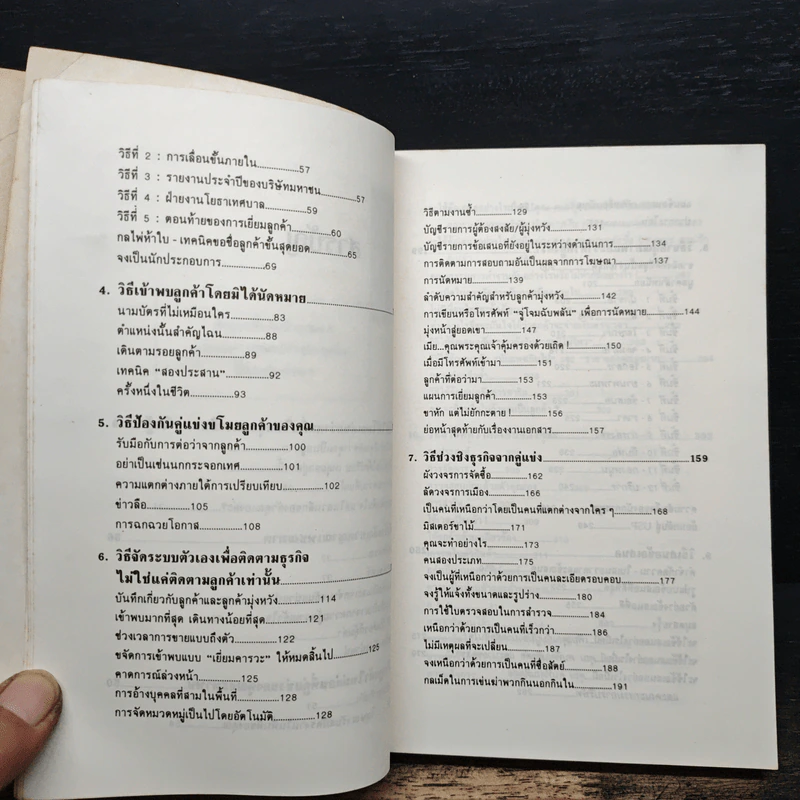 วิธีที่ 2 : การเลื่อนขั้นภายใน....................57
วิธีที่ 3 : รายงานประจำปีของบริษัทมหาชน....................57
วิธีที่ 4 : ฝ่ายงานโยธาเทศบาล....................59
วิธีที่ 5 : ตอนท้ายของการเยี่ยมลูกค้า....................60
กลไพ่ห้าใบ - เทคนิคขอชื่อลูกค้าขั้นสุดยอด....................65
จงเป็นนักประกอบการ....................69
4. วิธีเข้าพบลูกค้าโดยมิได้นัดหมาย....................
นามบัตรที่ไม่เหมือนใคร....................83
ตำแหน่งนั้นสำคัญไฉน....................88
เดินตามรอยลูกค้า....................89
เทคนิค "สองประสาน"....................92
ครั้งหนึ่งในชีวิต....................93
5. วิธีป้องกันคู่แข่งขโมยลูกค้าของคุณ....................
รับมือกับการต่อว่าจากลูกค้า....................100
อย่าเป็นเช่นนกกระจอกเทศ....................101
ความแตกต่างภายใต้การเปรียบเทียบ....................102
ข่าวลือ....................105
การฉกฉวยโอกาส....................108
6. วิธีจัดระบบตัวเองเพื่อติดตามธุรกิจ
ไม่ใช่แค่ติดตามลูกค้าเท่านั้น....................
บันทึกเกี่ยวกับลูกค้าและลูกค้ามุ่งหวัง....................114
เข้าพบมากที่สุด เดินทางน้อยที่สุด....................121
ช่วงเวลาการขายแบบถึงตัว....................122
ขจัดการเข้าพบแบบ "เยี่ยมคารวะ" ให้หมดสิ้นไป....................125
คาดการณ์ล่วงหน้า....................125
การอ้างบุคคลที่สามในพื้นที่....................128
การจัดหมวดหมู่เป็นไปโดยอัตโนมัติ....................128
วิธีตามงานซ้ำ....................129
บัญชีรายการผู้ต้องสงสัย/ผู้มุ่งหวัง....................131
บัญชีรายการข้อเสนอที่ยังอยู่ในระหว่างดำเนินการ....................134
การติดตามการสอบถามอันเป็นผลจากการโฆษณา....................137
การนัดหมาย....................139
ลำดับความสำคัญสำหรับลูกค้ามุ่งหวัง....................142
การเขียนหรือโทรศัพท์ "จู่โจมฉับพลัน" เพื่อการนัดหมาย....................144
มุ่งหน้าสู่ยอดเขา....................147
เมีย...คุณพระคุณเจ้าคุ้มครองด้วยเถิด !....................150
เมื่อมีโทรศัพท์เข้ามา....................151
ลูกค้าที่ต่อว่ามา....................153
แผนการเยี่ยมลูกค้า....................153
ขาหัก แต่ไม่ยักกะตาย !....................156
ย่อหน้าสุดท้ายกับเรื่องงานเอกสาร....................157
7. วิธีช่วงชิงธุรกิจจากคู่แข่ง....................159
ผังวงจรการจัดซื้อ....................162
ลัดวงจรการเมือง....................166
เป็นคนที่เหนือกว่าโดยเป็นคนที่แตกต่างจากใคร ๆ....................168
มิสเตอร์ขาไม้....................171
คุณจะทำอย่างไร....................173
คนสองประเภท....................
จงเป็นผู้ที่เหนือกว่าด้วยการเป็นคนละเอียดรอบคอบ....................177
จงรู้ให้แจ้งทั้งขนาดและรูปร่าง....................180
การใช้ใบตรวจสอบในการสำรวจ....................184
เหนือกว่าด้วยการเป็นคนที่เร็วกว่า....................186
ไม่มีเหตุผลที่จะเปลี่ยน....................187
จงเหนือกว่าด้วยการเป็นคนที่ซื่อสัตย์....................188
กลเม็ดในการเข่นฆ่าพวกกินนอกกินใน....................191